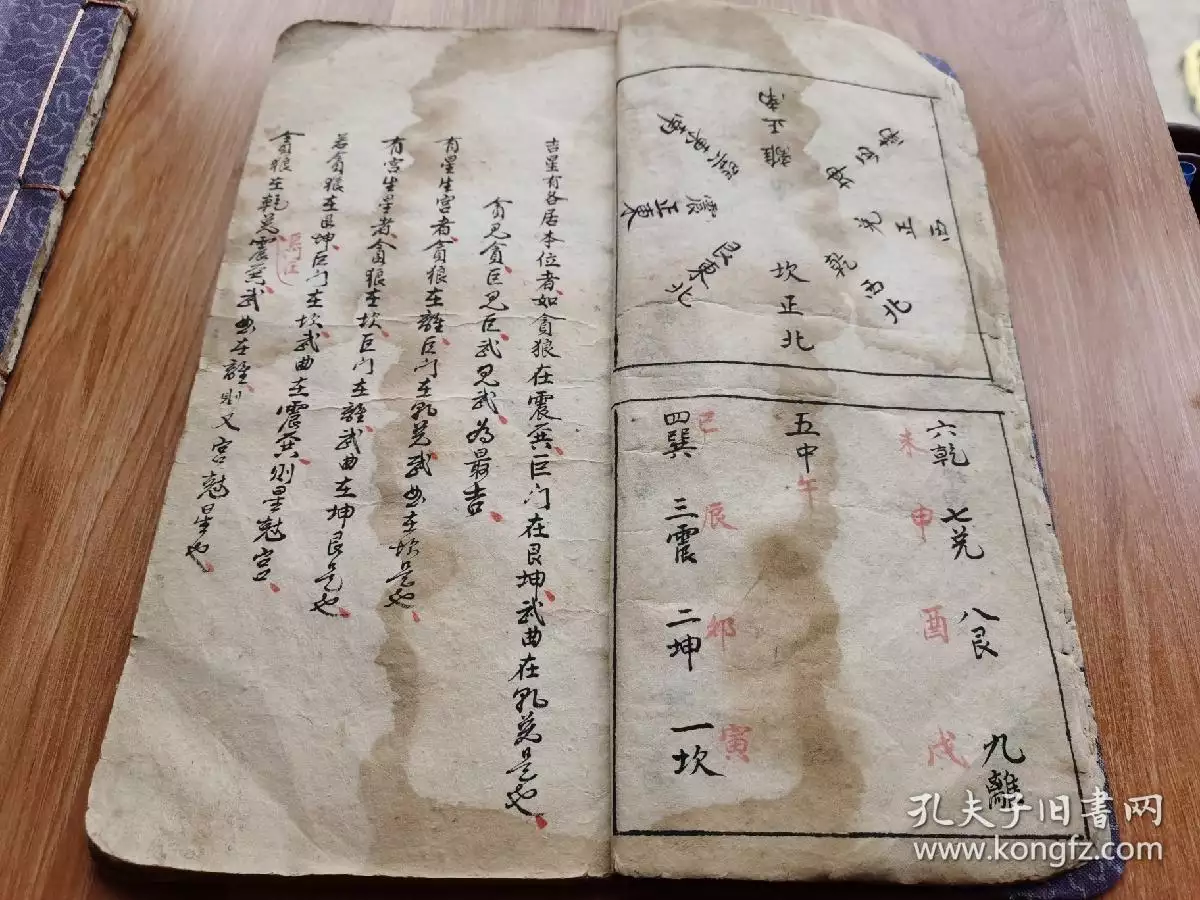 離正南
坤西南
兌正西
乾西北
坎正北
艮東北
震正東
巽東南
六乾 未
七兑 申
八艮 酉
九離 戌
五中 午
四巽 巳
三震 辰
二坤 卯
一坎 寅
吉星有各居本位者、如貪狼在震巽、巨门在艮坤、武曲在乹兑是也、
貪見貪、巨見巨、武見武、為最吉、
有星生宫者、貪狼在離、巨门在乹兑、武曲在坎是也、
有宫生星者、貪狼在坎、巨门在離、武曲在坤艮是也、
若貪狼在艮坤、巨门在坎、武曲在震巽、则星尅宫、
貪狼在乾兑、巨门在震巽、武曲在離、则又宫尅星也、
孔夫子旧书网
www.kongfz.com